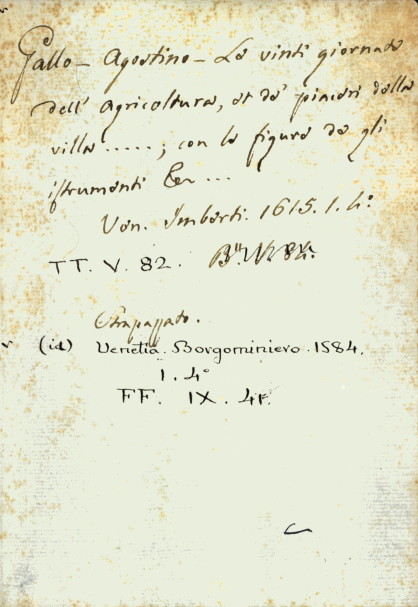 Gallo - Agostino - Le vinti giornate
dell' Agricoltura, et de' piaceri della
villa .....; con le figure de gli
istrumenti &c ...
Ven. Imberti. 1615. 1. 4°
TT. V. 82.
Strapazzato.
(id) Venetia. Borgominiero. 1584.
1. 4°
FF. IX. 41.